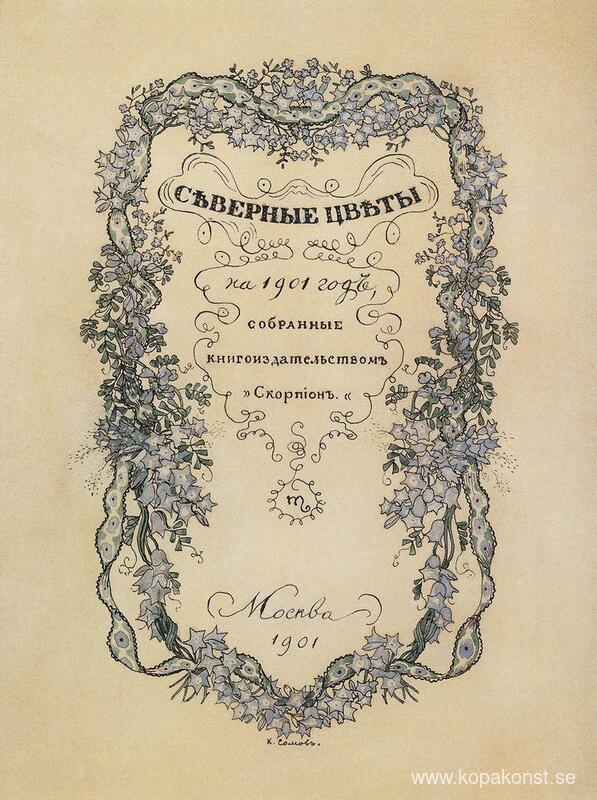 СѢВЕРНЫЕ ЦВѢТЫ
на 1901 годъ,
СОБРАННЫЕ
книгоиздательствомъ
»Скорпіонъ.«
♏
Москва
1901
К. Сомовъ.
www.kopakonst.se